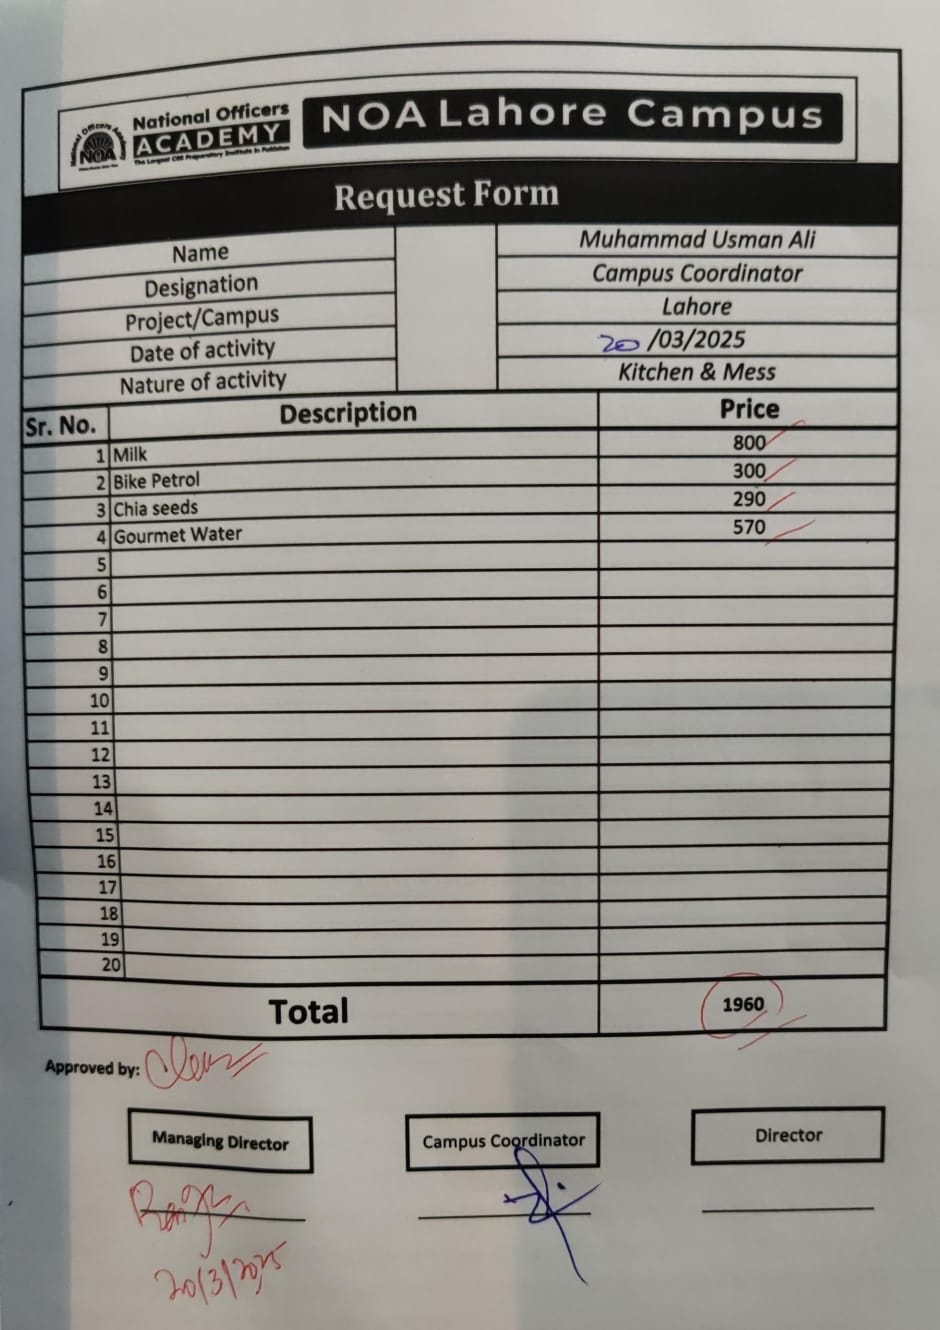 National Officers
ACADEMY
The Largest CSS Preparatory Institute in Pakistan
NOA
NOA Lahore Campus
Request Form
Name Muhammad Usman Ali
Designation Campus Coordinator
Project/Campus Lahore
Date of activity 20/03/2025
Nature of activity Kitchen & Mess
Sr. No. Description Price
1 Milk 800
2 Bike Petrol 300
3 Chia seeds 290
4 Gourmet Water 570
5
6
7
8
9
10
11
12
13
14
15
16
17
18
19
20
Total 1960
Approved by: Clear
Managing Director Campus Coordinator Director
20/3/2025